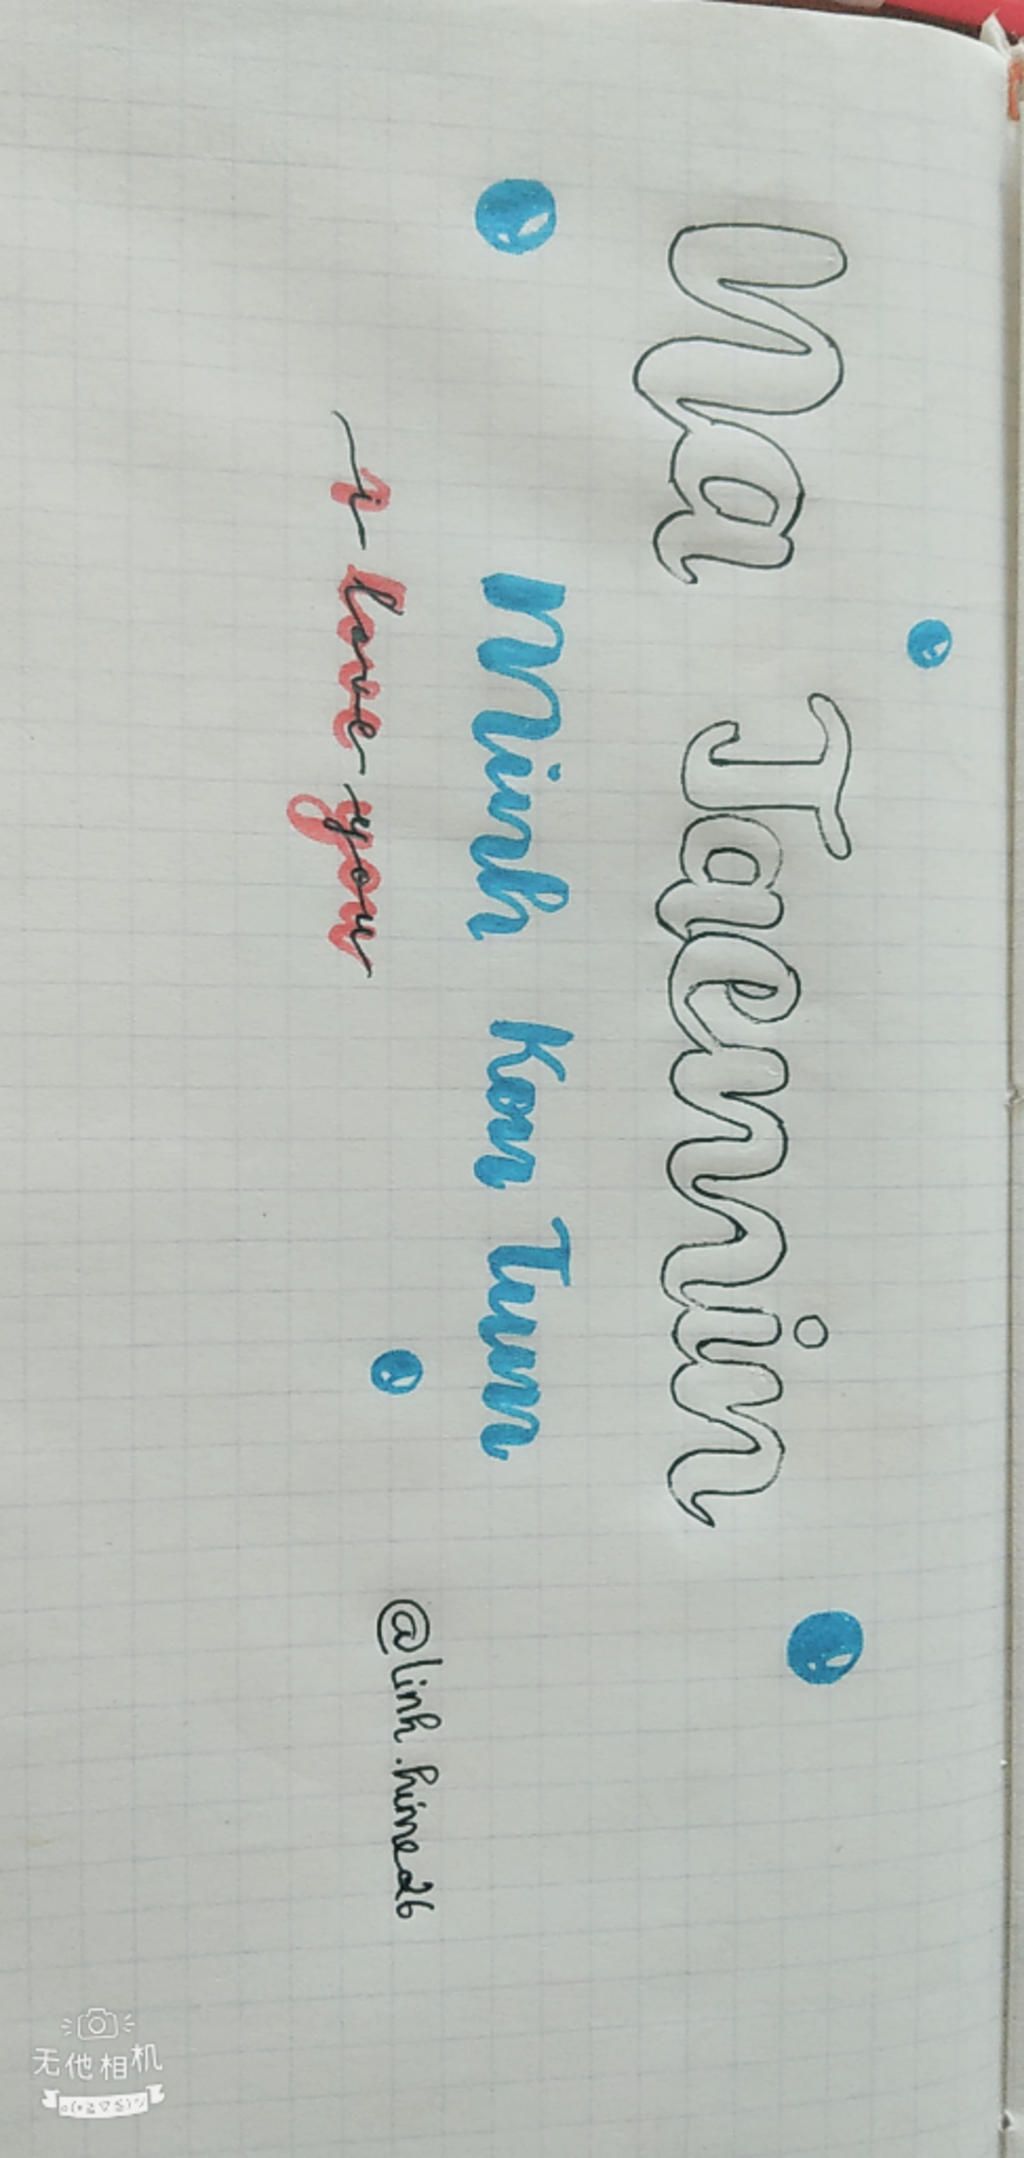 Na Jaemin
Minh Kon Tum
i love you
@linh.hime26
无他相机